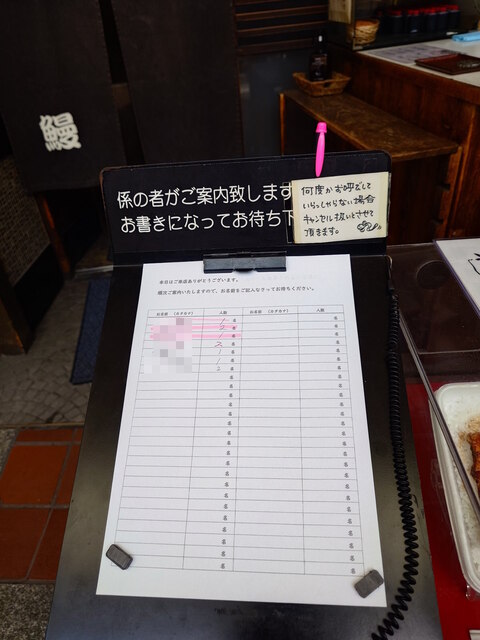 鰻
係の者がご案内致します
お書きになってお待ち下
何度かお呼びして
いらっしゃらない場合
キャンセル扱いとさせて
頂きます。
本日はご来店ありがとうございます。
順次ご案内いたしますので、お名前をご記入なさってお待ちください。
お名前 (カタカナ) 人数 お名前 (カタカナ) 人数
1名 名
2名 名
1名 名
2名 名
1名 名
1名 名
2名 名
名 名
名 名
名 名
名 名
名 名
名 名
名 名
名 名
名 名
名 名
名 名
名 名
名 名
名 名
名 名
名 名
名 名
名 名
名 名
名 名
名 名